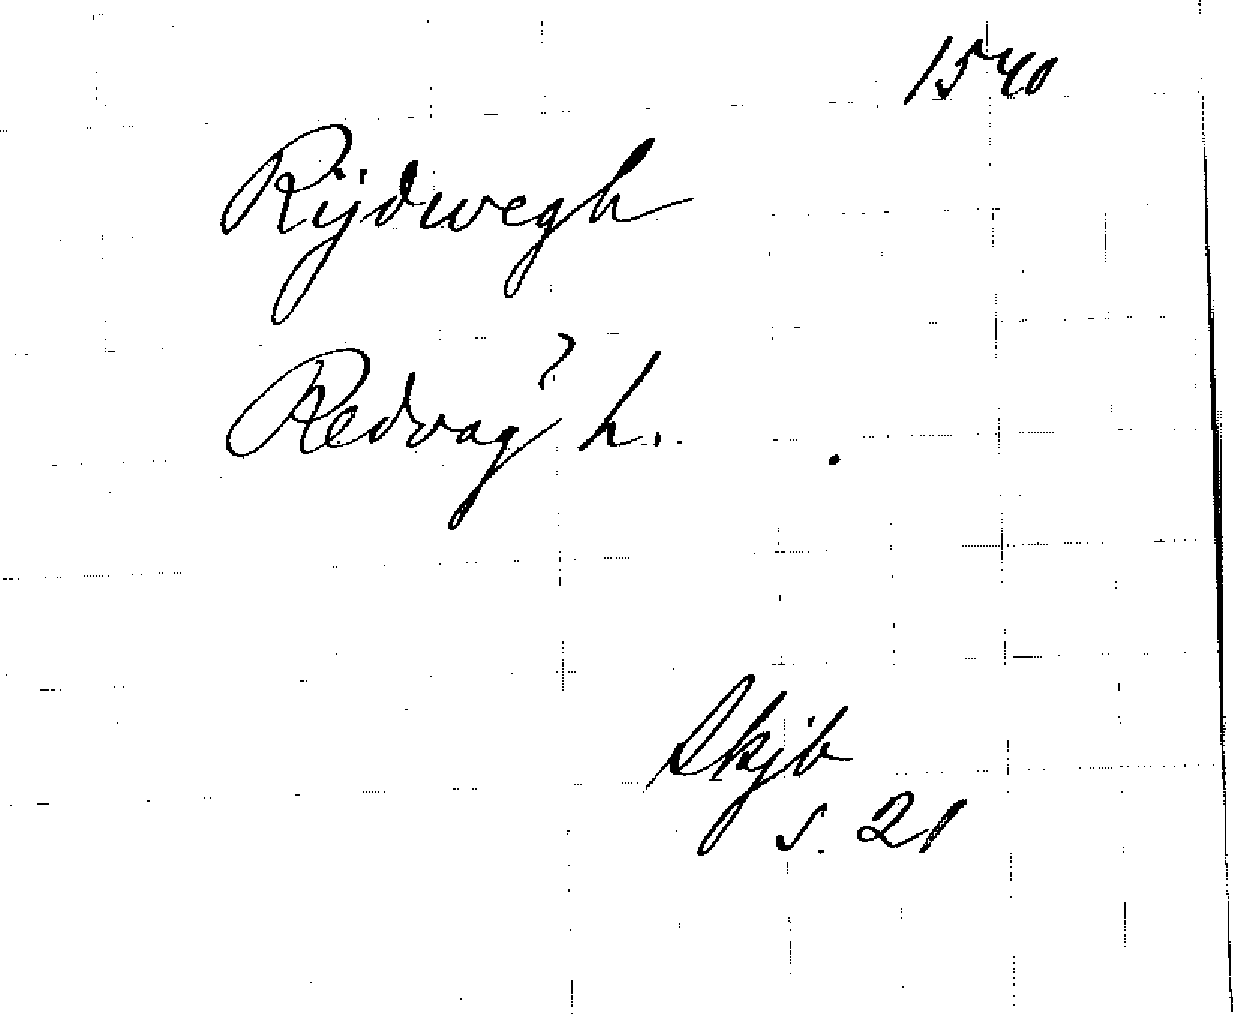 1540
Rijdwegh
Redvag? h.
Skjb
s. 21